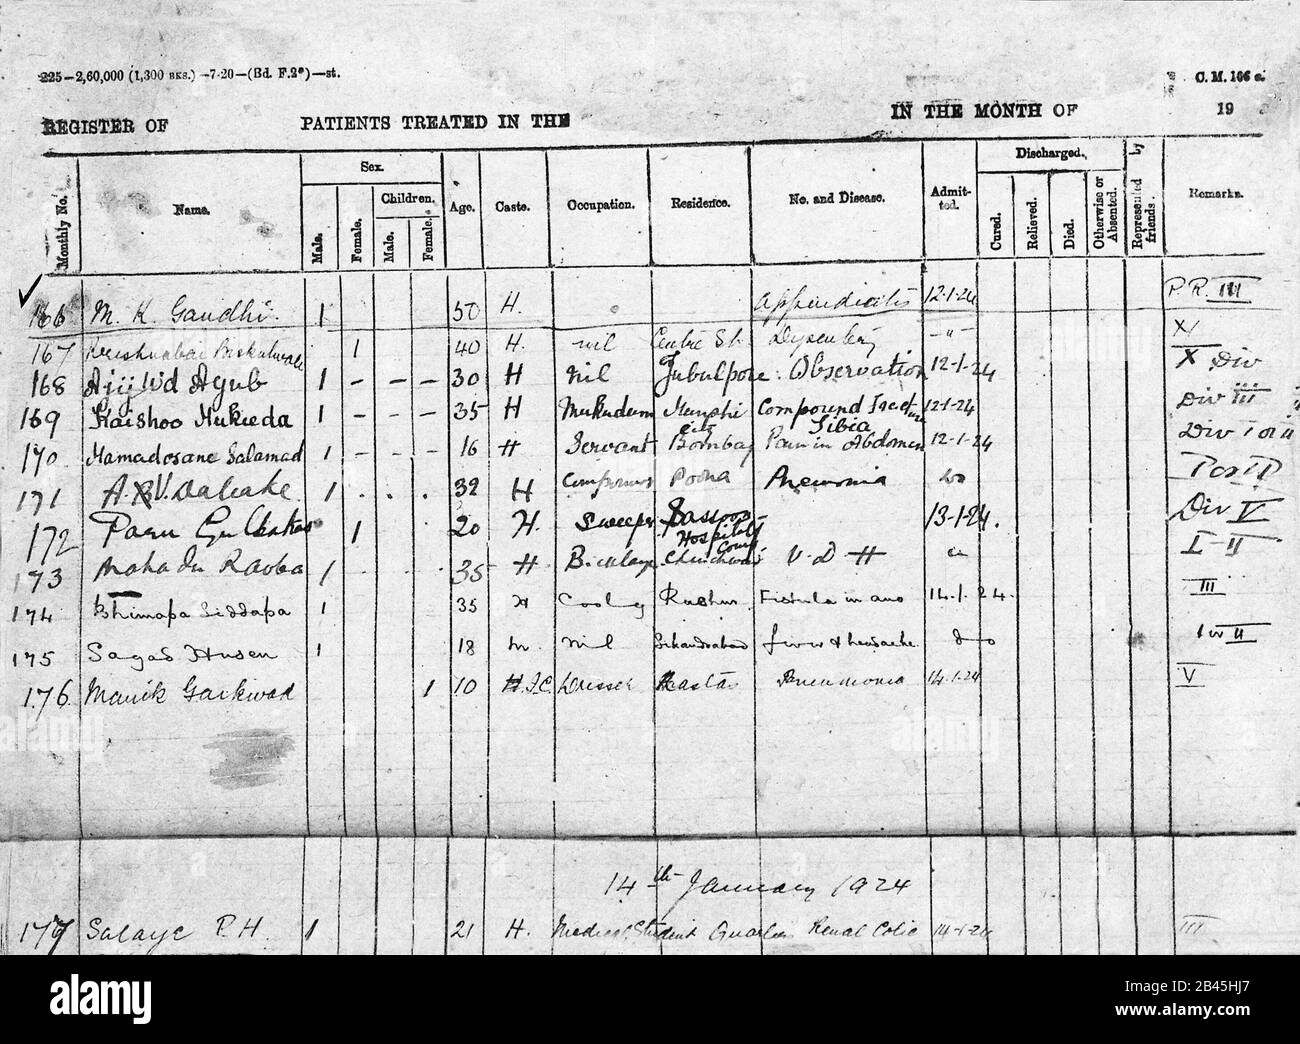 225—2,60,000 (1,300 BKS.) —7-20—(Bd. F.2*)—st. C. M. 106
REGISTER OF PATIENTS TREATED IN THE IN THE MONTH OF 19
Monthly No. Name. Sex. Male. Female. Children. Male. Female. Age. Caste. Occupation. Residence. No. and Disease. Admitted. Discharged. Cured. Relieved. Died. Otherwise or Absented. Represented by friends. Remarks.
166 M. K. Gandhi. 1 50 H. Appendicitis 12-1-24 P. R. III
167 1 40 H. nil Centre St. Dysentery —"— XI
168 Ayub 1 – – – 30 H Nil Jubulpore. Observation 12-1-24 X Div
169 Kaishoo Mukieda 1 – – – 35 H Mukudum Compound Tibia 12-1-24 Div III
170 Mamadosane Salamad 1 – – – 16 H Servant Bombay Pain in Abdomen 12-1-24 Div I or II
171 1 . . . 32 H Poona Pneumonia do
172 Paru 1 20 H. Sweeper Sassoon Hospital Comp 13-1-24. Div V
173 Raoba 1 35 H. V. D H " I – II
174 Bhimapa Siddapa 1 35 H Cooly Fistula in ano 14-1-24. III
175 Sayad Husen 1 18 M. nil Sikandrabad fever & headache do I or II
176 Manik Gaikwad 1 10 H. I.C. Dresser Rasta Pneumonia 14-1-24 V
14th January 1924
177 Salaye P. H. 1 21 H. Medical Student Quarters Renal Colic 14-1-24 III
alamy
alamy
alamy
Image ID: 2B45HJ7
www.alamy.com